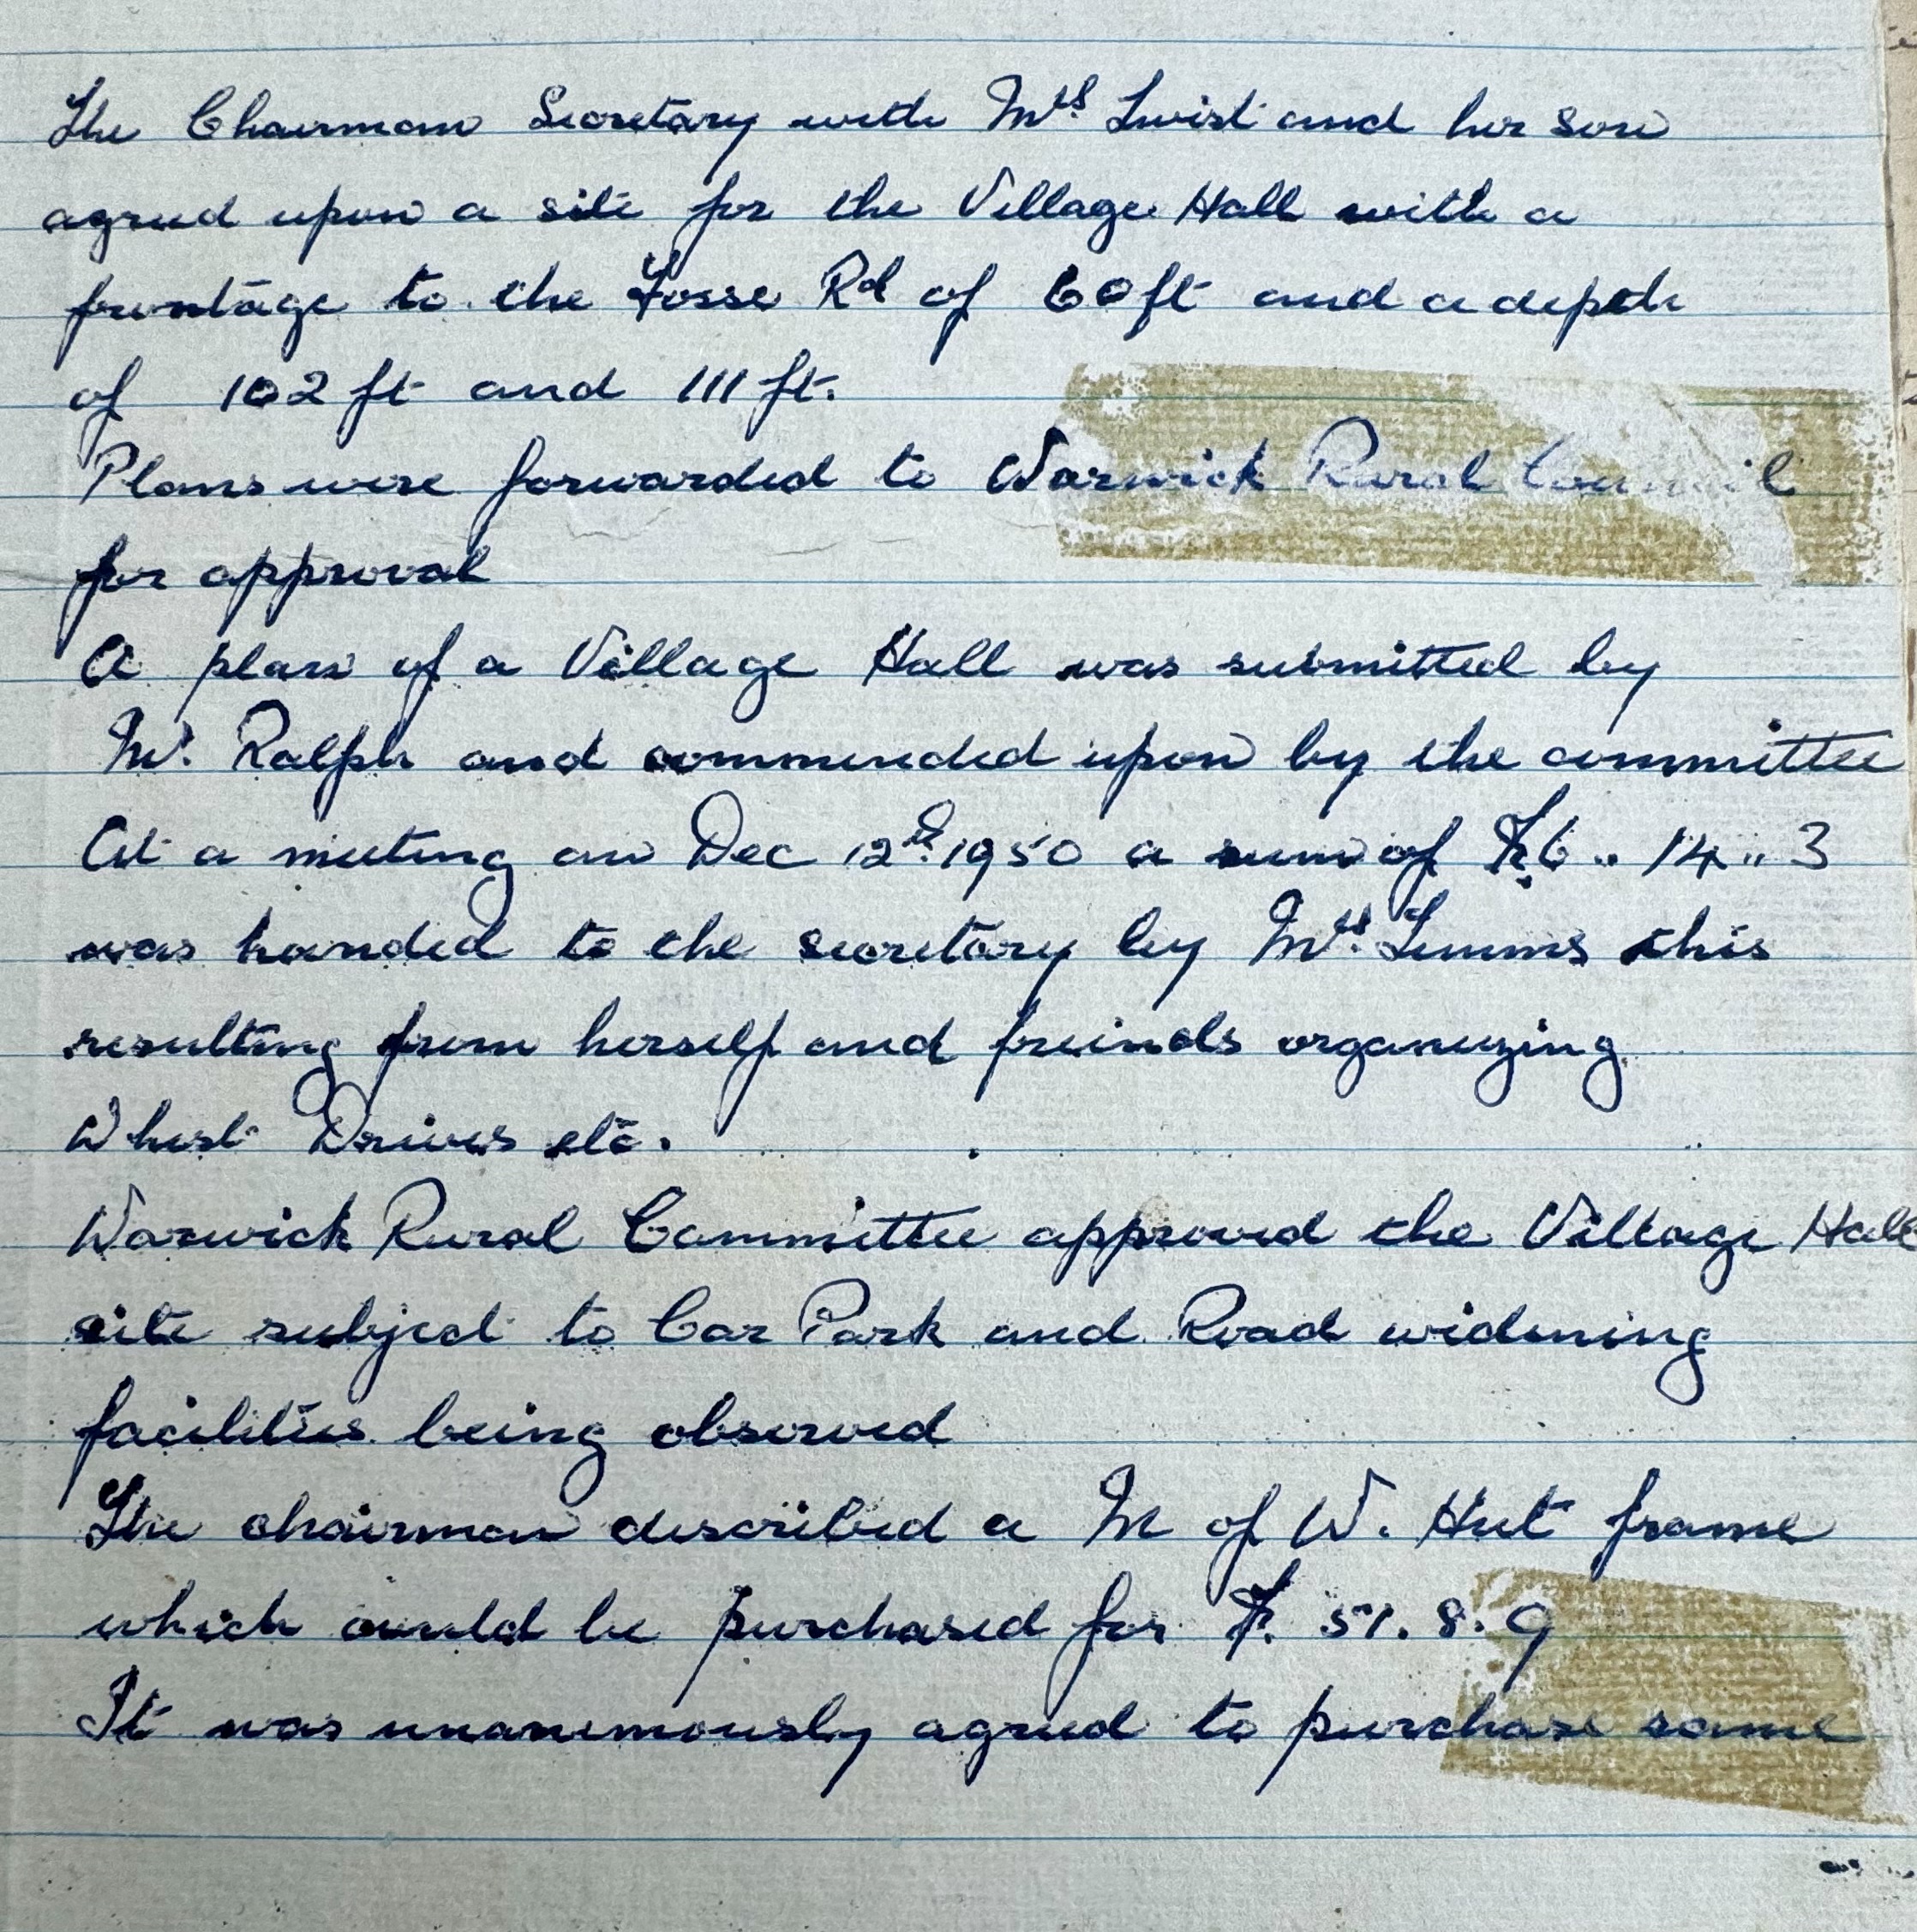 The Chairman Secretary with Mrs. Twist and her son
agreed upon a site for the Village Hall with a
frontage to the Fosse Rd of 60 ft and a depth
of 102 ft and 111 ft.
Plans were forwarded to Warwick Rural Council
for approval
A plan of a Village Hall was submitted by
Mr. Ralph and commended upon by the committee
At a meeting on Dec 12th. 1950 a sum of £6 .. 14 .. 3
was handed to the secretary by Mrs. Timms this
resulting from herself and freinds organizing
Whist Drives etc.
Warwick Rural Committee approved the Village Hall
site subject to Car Park and Road widening
facilities being observed
The chairman described a M of W. Hut frame
which could be purchased for £. 51. 8. 9
It was unanimously agreed to purchase same